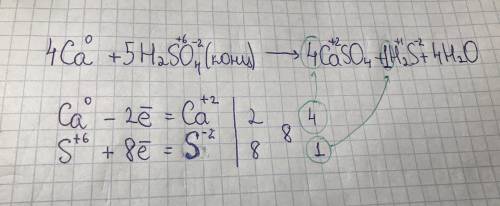 4Ca⁰ + 5H₂S⁺⁶O₄⁻²(конц) → 4Ca⁺²SO₄ + 1H₂⁺¹S⁻² + 4H₂O
Ca⁰ - 2e̅ = Ca⁺² | 2 4
S⁺⁶ + 8e̅ = S⁻² | 8 8 1